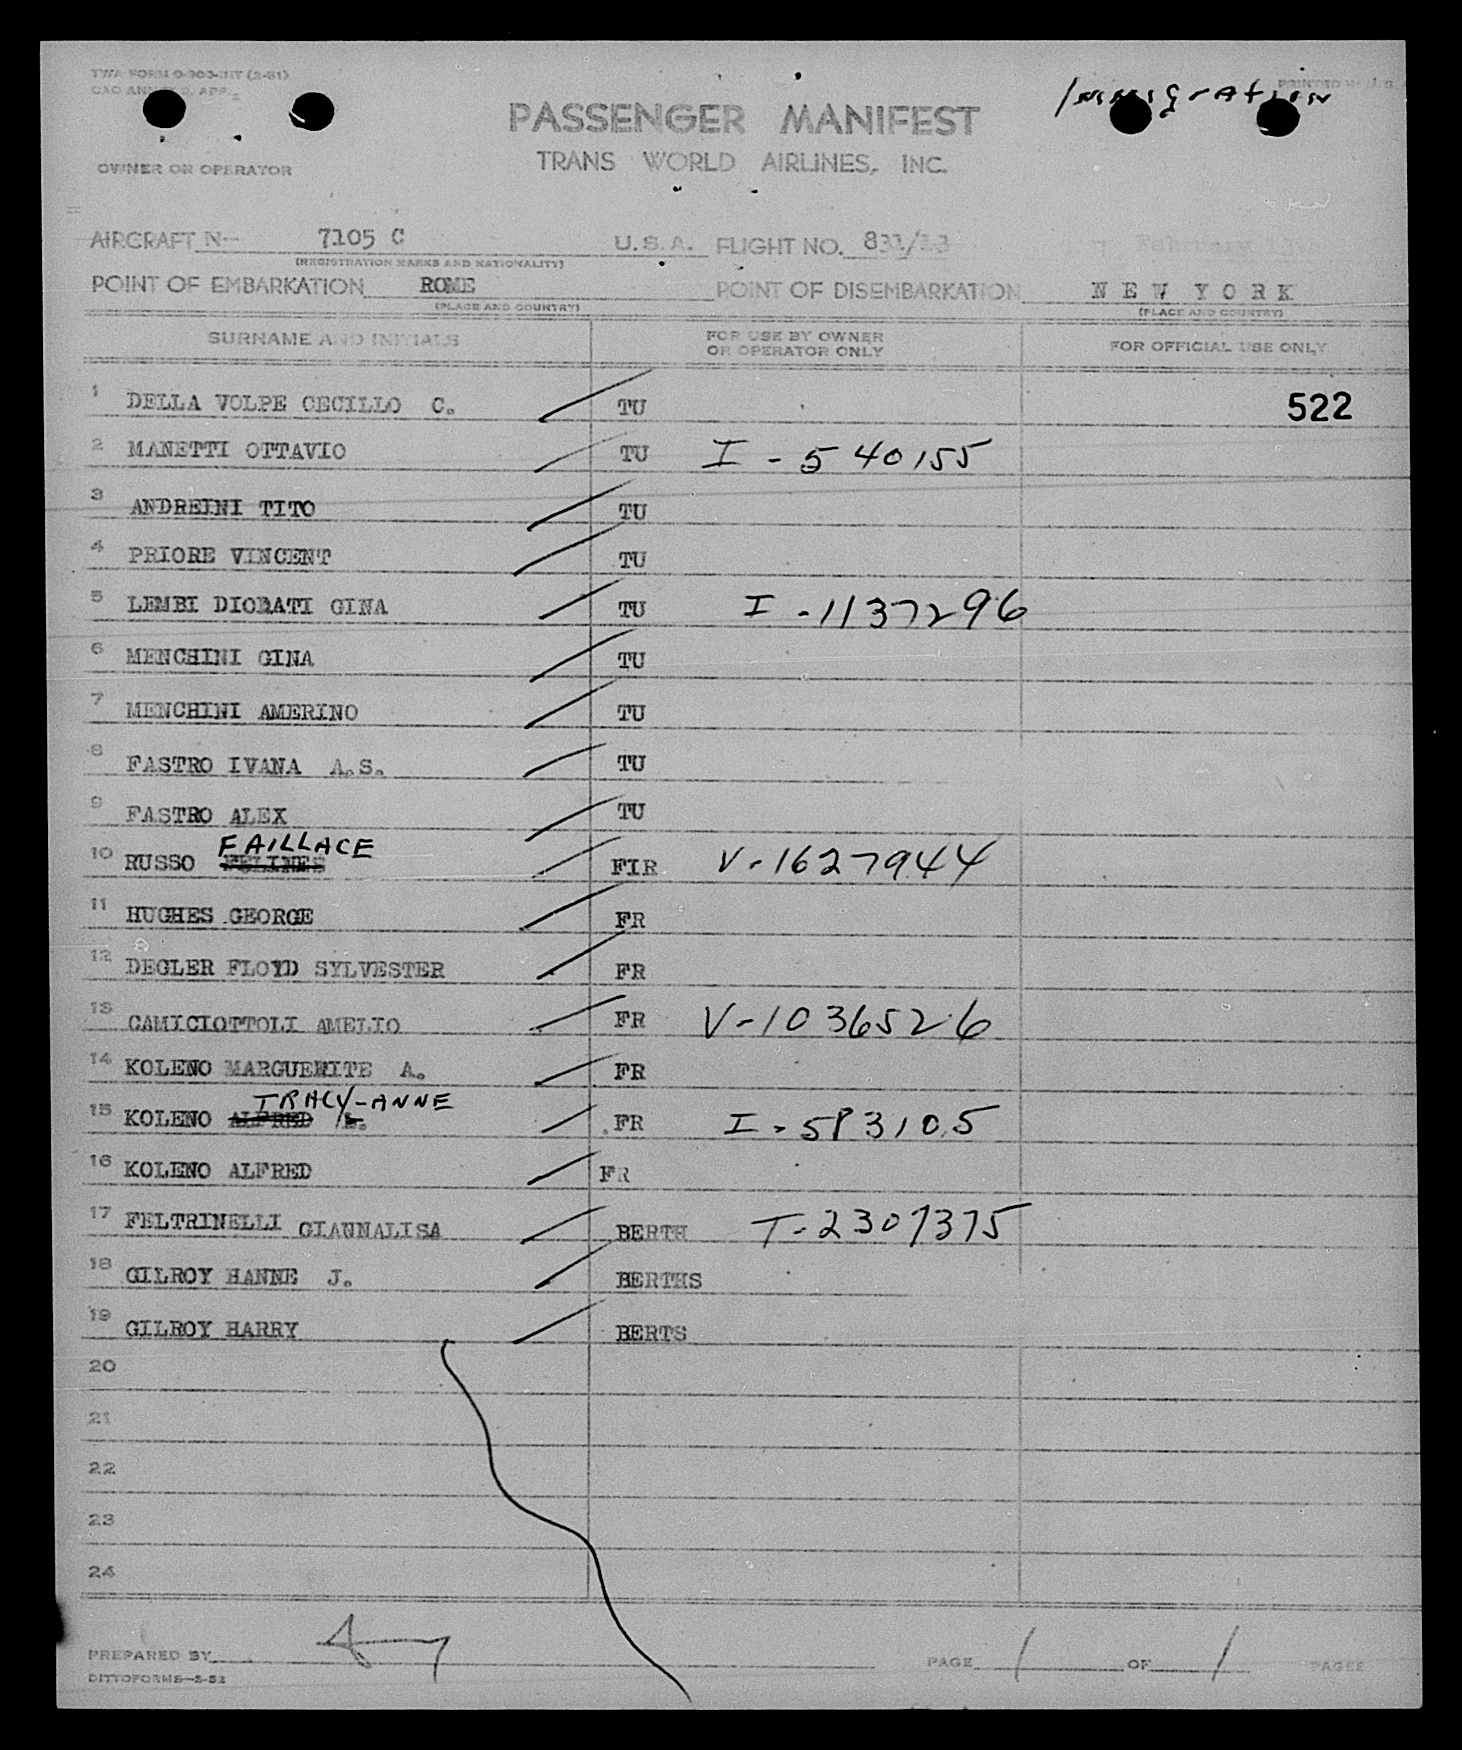 TWA FORM O-300-INT (2-51)
PASSENGER MANIFEST
Immigration
TRANS WORLD AIRLINES, INC.
OWNER OR OPERATOR
AIRCRAFT N- 7105 C U.S.A. FLIGHT NO. 831/13 February
(REGISTRATION MARKS AND NATIONALITY)
POINT OF EMBARKATION ROME POINT OF DISEMBARKATION NEW YORK
(PLACE AND COUNTRY) (PLACE AND COUNTRY)
SURNAME AND INITIALS FOR USE BY OWNER OR OPERATOR ONLY FOR OFFICIAL USE ONLY
1 DELLA VOLPE CECILLO C. TU 522
2 MANETTI OTTAVIO TU I-540155
3 ANDREINI TITO TU
4 PRIORE VINCENT TU
5 LEMBI DIODATI GINA TU I-1137296
6 MENCHINI GINA TU
7 MENCHINI AMERINO TU
8 FASTRO IVANA A.S. TU
9 FASTRO ALEX TU
FAILLACE
10 RUSSO FIR V-1627944
11 HUGHES GEORGE FR
12 DEGLER FLOYD SYLVESTER FR
13 CAMICIOTTOLI AMELIO FR V-1036526
14 KOLENO MARGUERITE A. FR
TRACY-ANNE
15 KOLENO ALFRED FR I-583105
16 KOLENO ALFRED FR
17 FELTRINELLI GIANNALISA BERTH T-2307375
18 GILROY HANNE J. BERTHS
19 GILROY HARRY BERTS
20
21
22
23
24
PREPARED BY PAGE 1 OF 1 PAGES
DITTOFORMS-2-52